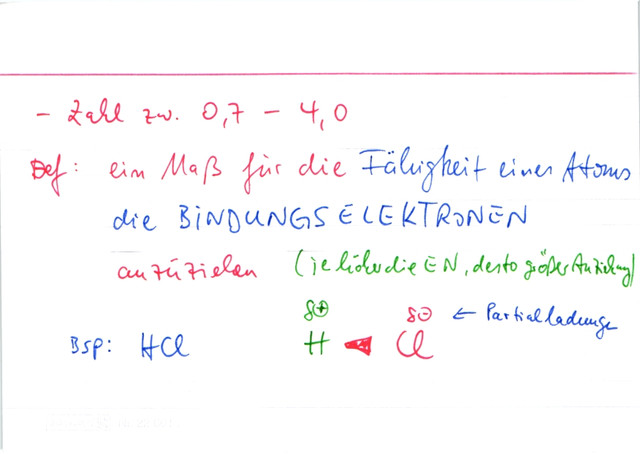 - Zahl zw. 0,7 - 4,0
Def: ein Maß für die Fähigkeit einer Atoms
die BINDUNGSELEKTRONEN
anzuzielen (je höher die EN, desto größer Anziehung)
δ⊕ δ⊖ ← Partialladunge
Bsp: HCl H ◄ Cl